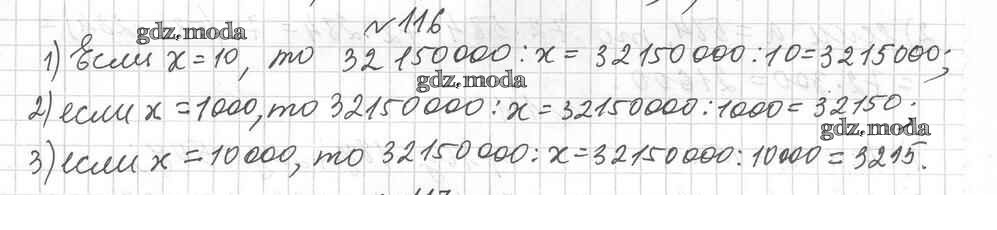 №116
gdz.moda
1) Если x = 10, то 32 150000 : x = 32150000 : 10 = 3215000;
gdz.moda
2) если x = 1000, то 32150000 : x = 32150000 : 1000 = 32150.
gdz.moda
3) если x = 10000, то 32150000 : x = 32150000 : 10000 = 3215.